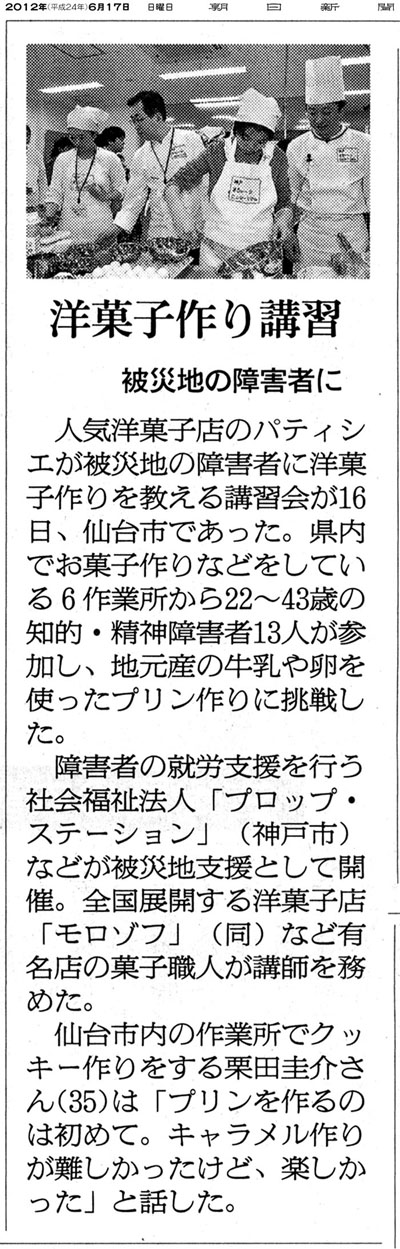 2012年(平成24年)6月17日 日曜日 朝日新聞
洋菓子作り講習
被災地の障害者に
人気洋菓子店のパティシ
エが被災地の障害者に洋菓
子作りを教える講習会が16
日、仙台市であった。県内
でお菓子作りなどをしてい
る6作業所から22〜43歳の
知的・精神障害者13人が参
加し、地元産の牛乳や卵を
使ったプリン作りに挑戦し
た。
障害者の就労支援を行う
社会福祉法人「プロップ・
ステーション」（神戸市）
などが被災地支援として開
催。全国展開する洋菓子店
「モロゾフ」（同）など有
名店の菓子職人が講師を務
めた。
仙台市内の作業所でクッ
キー作りをする栗田圭介さ
ん(35)は「プリンを作るの
は初めて。キャラメル作り
が難しかったけど、楽しか
った」と話した。